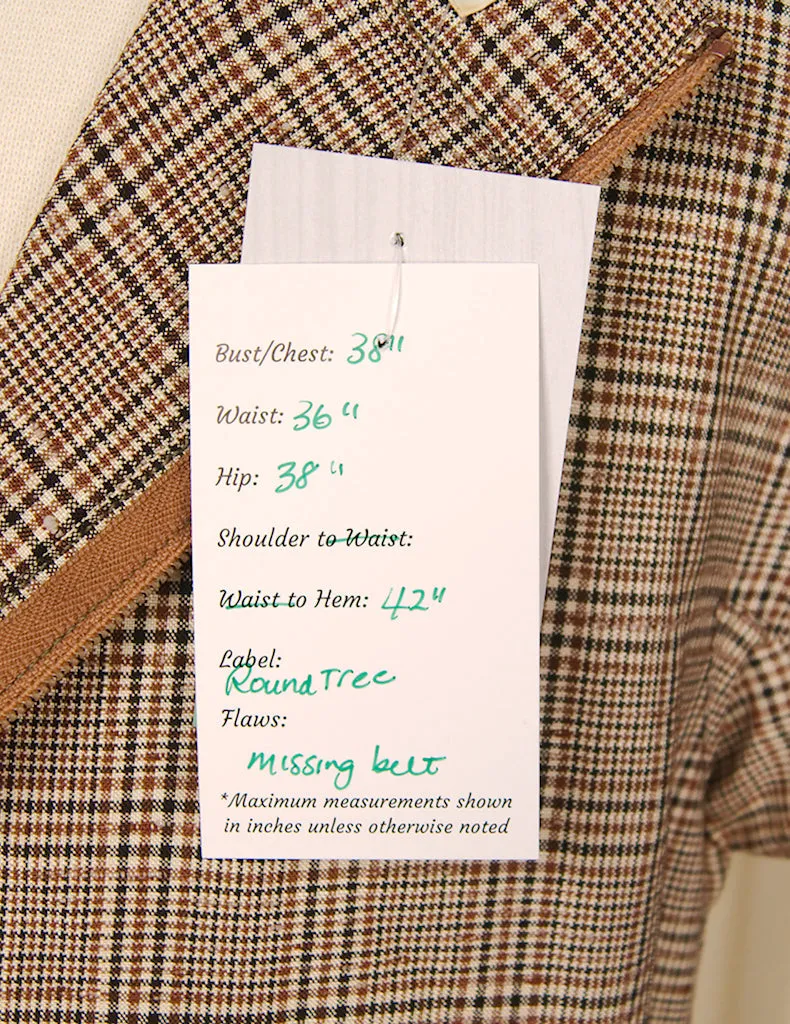 Bust/Chest: 38"
Waist: 36"
Hip: 38"
Shoulder to Waist:
Waist to Hem: 42"
Label:
RoundTree
Flaws:
missing belt
*Maximum measurements shown
in inches unless otherwise noted